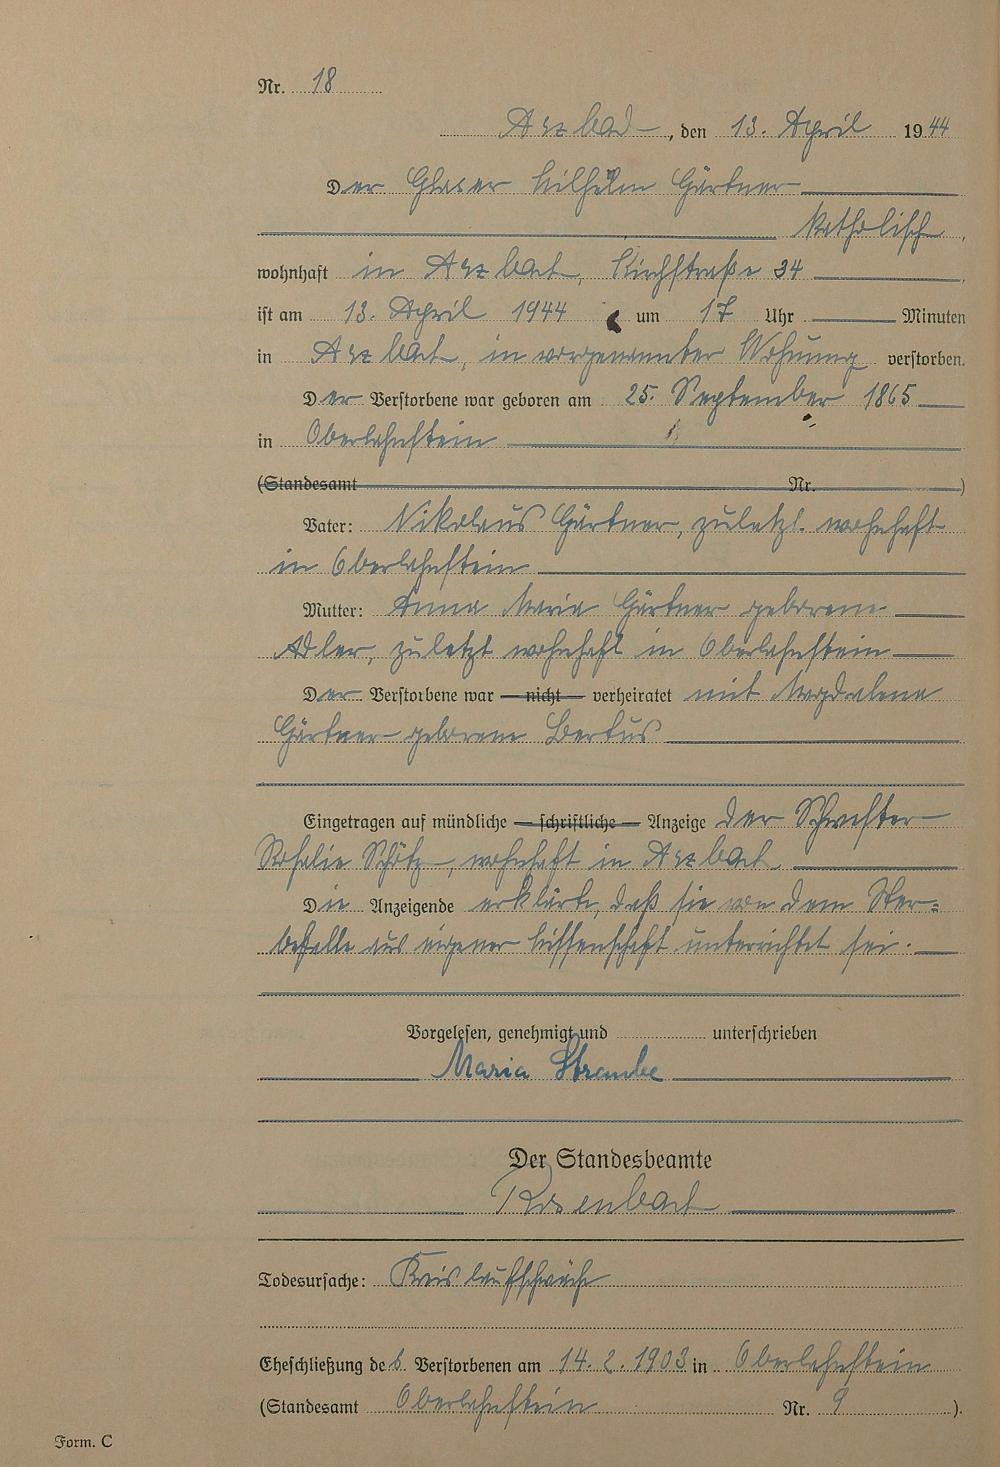 Nr. 18
Arzbach, den 13. April 1944
Der Glaser Wilhelm Gärtner
katholisch,
wohnhaft in Arzbach, Kirchstraße 34,
ist am 13. April 1944 um 17 Uhr Minuten
in Arzbach, in vorgenannter Wohnung verstorben.
Der Verstorbene war geboren am 25. September 1865
in Oberlahnstein
(Standesamt Nr. )
Vater: Nikolaus Gärtner, zuletzt wohnhaft
in Oberlahnstein
Mutter: Anna Maria Gärtner geborene
Adler, zuletzt wohnhaft in Oberlahnstein
Der Verstorbene war nicht verheiratet mit Magdalena
Gärtner geborene
Eingetragen auf mündliche schriftliche Anzeige der Schwester
wohnhaft in Arzbach.
Die Anzeigende erklärte, daß sie von dem Ster=
befalle aus eigener Wissenschaft unterrichtet sei.
Vorgelesen, genehmigt und unterschrieben
Maria
Der Standesbeamte
Todesursache: Kreislaufschwäche
Eheschließung des Verstorbenen am 14. 2. 1903 in Oberlahnstein
(Standesamt Oberlahnstein Nr. 9 ).
Form. C